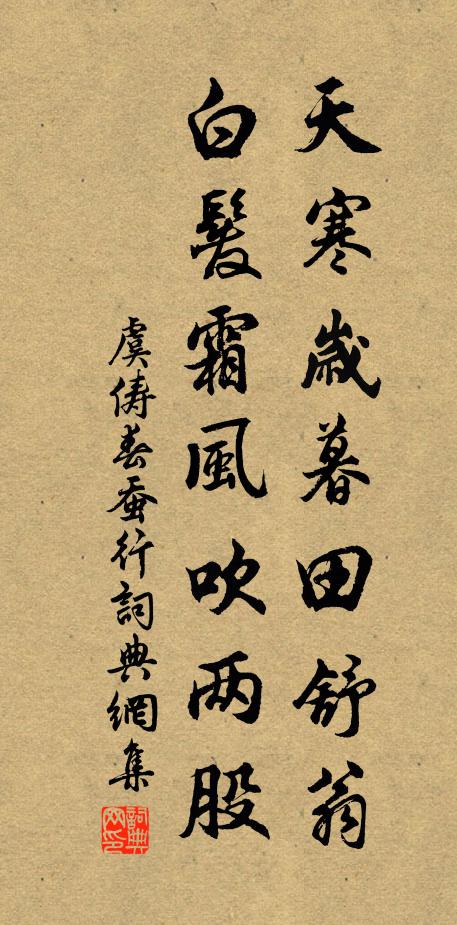 天寒歲暮田舒翁
白髮霜風吹两股
虞儔春蚕行詞典網集
詞典网印